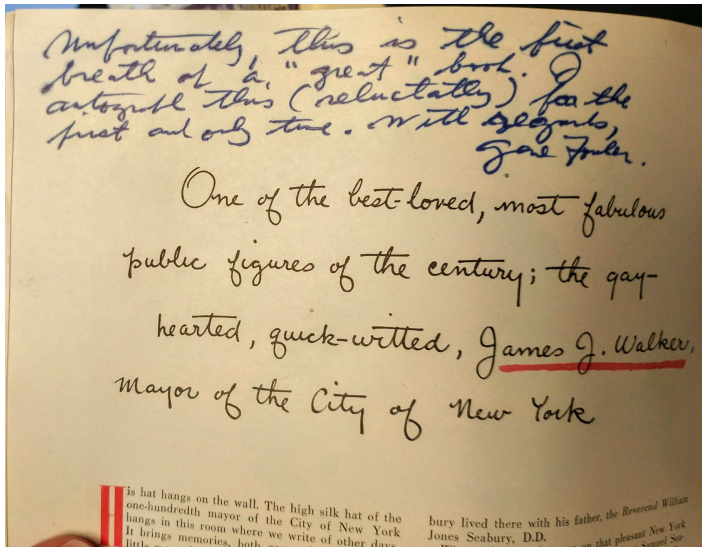 Unfortunately, this is the first
breath of a "great" book. I
autograph this (reluctatly) for the
first and only time. With regards,
Gene Fowler.
One of the best-loved, most fabulous
public figures of the century; the gay-
hearted, quick-witted, James J. Walker,
Mayor of the City of New York
His hat hangs on the wall. The high silk hat of the
one-hundredth mayor of the City of New York
hangs in this room where we write of other days.
It brings memories, both
little
bury lived there with his father, the Reverend William
Jones Seabury, D.D.
on that pleasant New York
Samuel Sea-